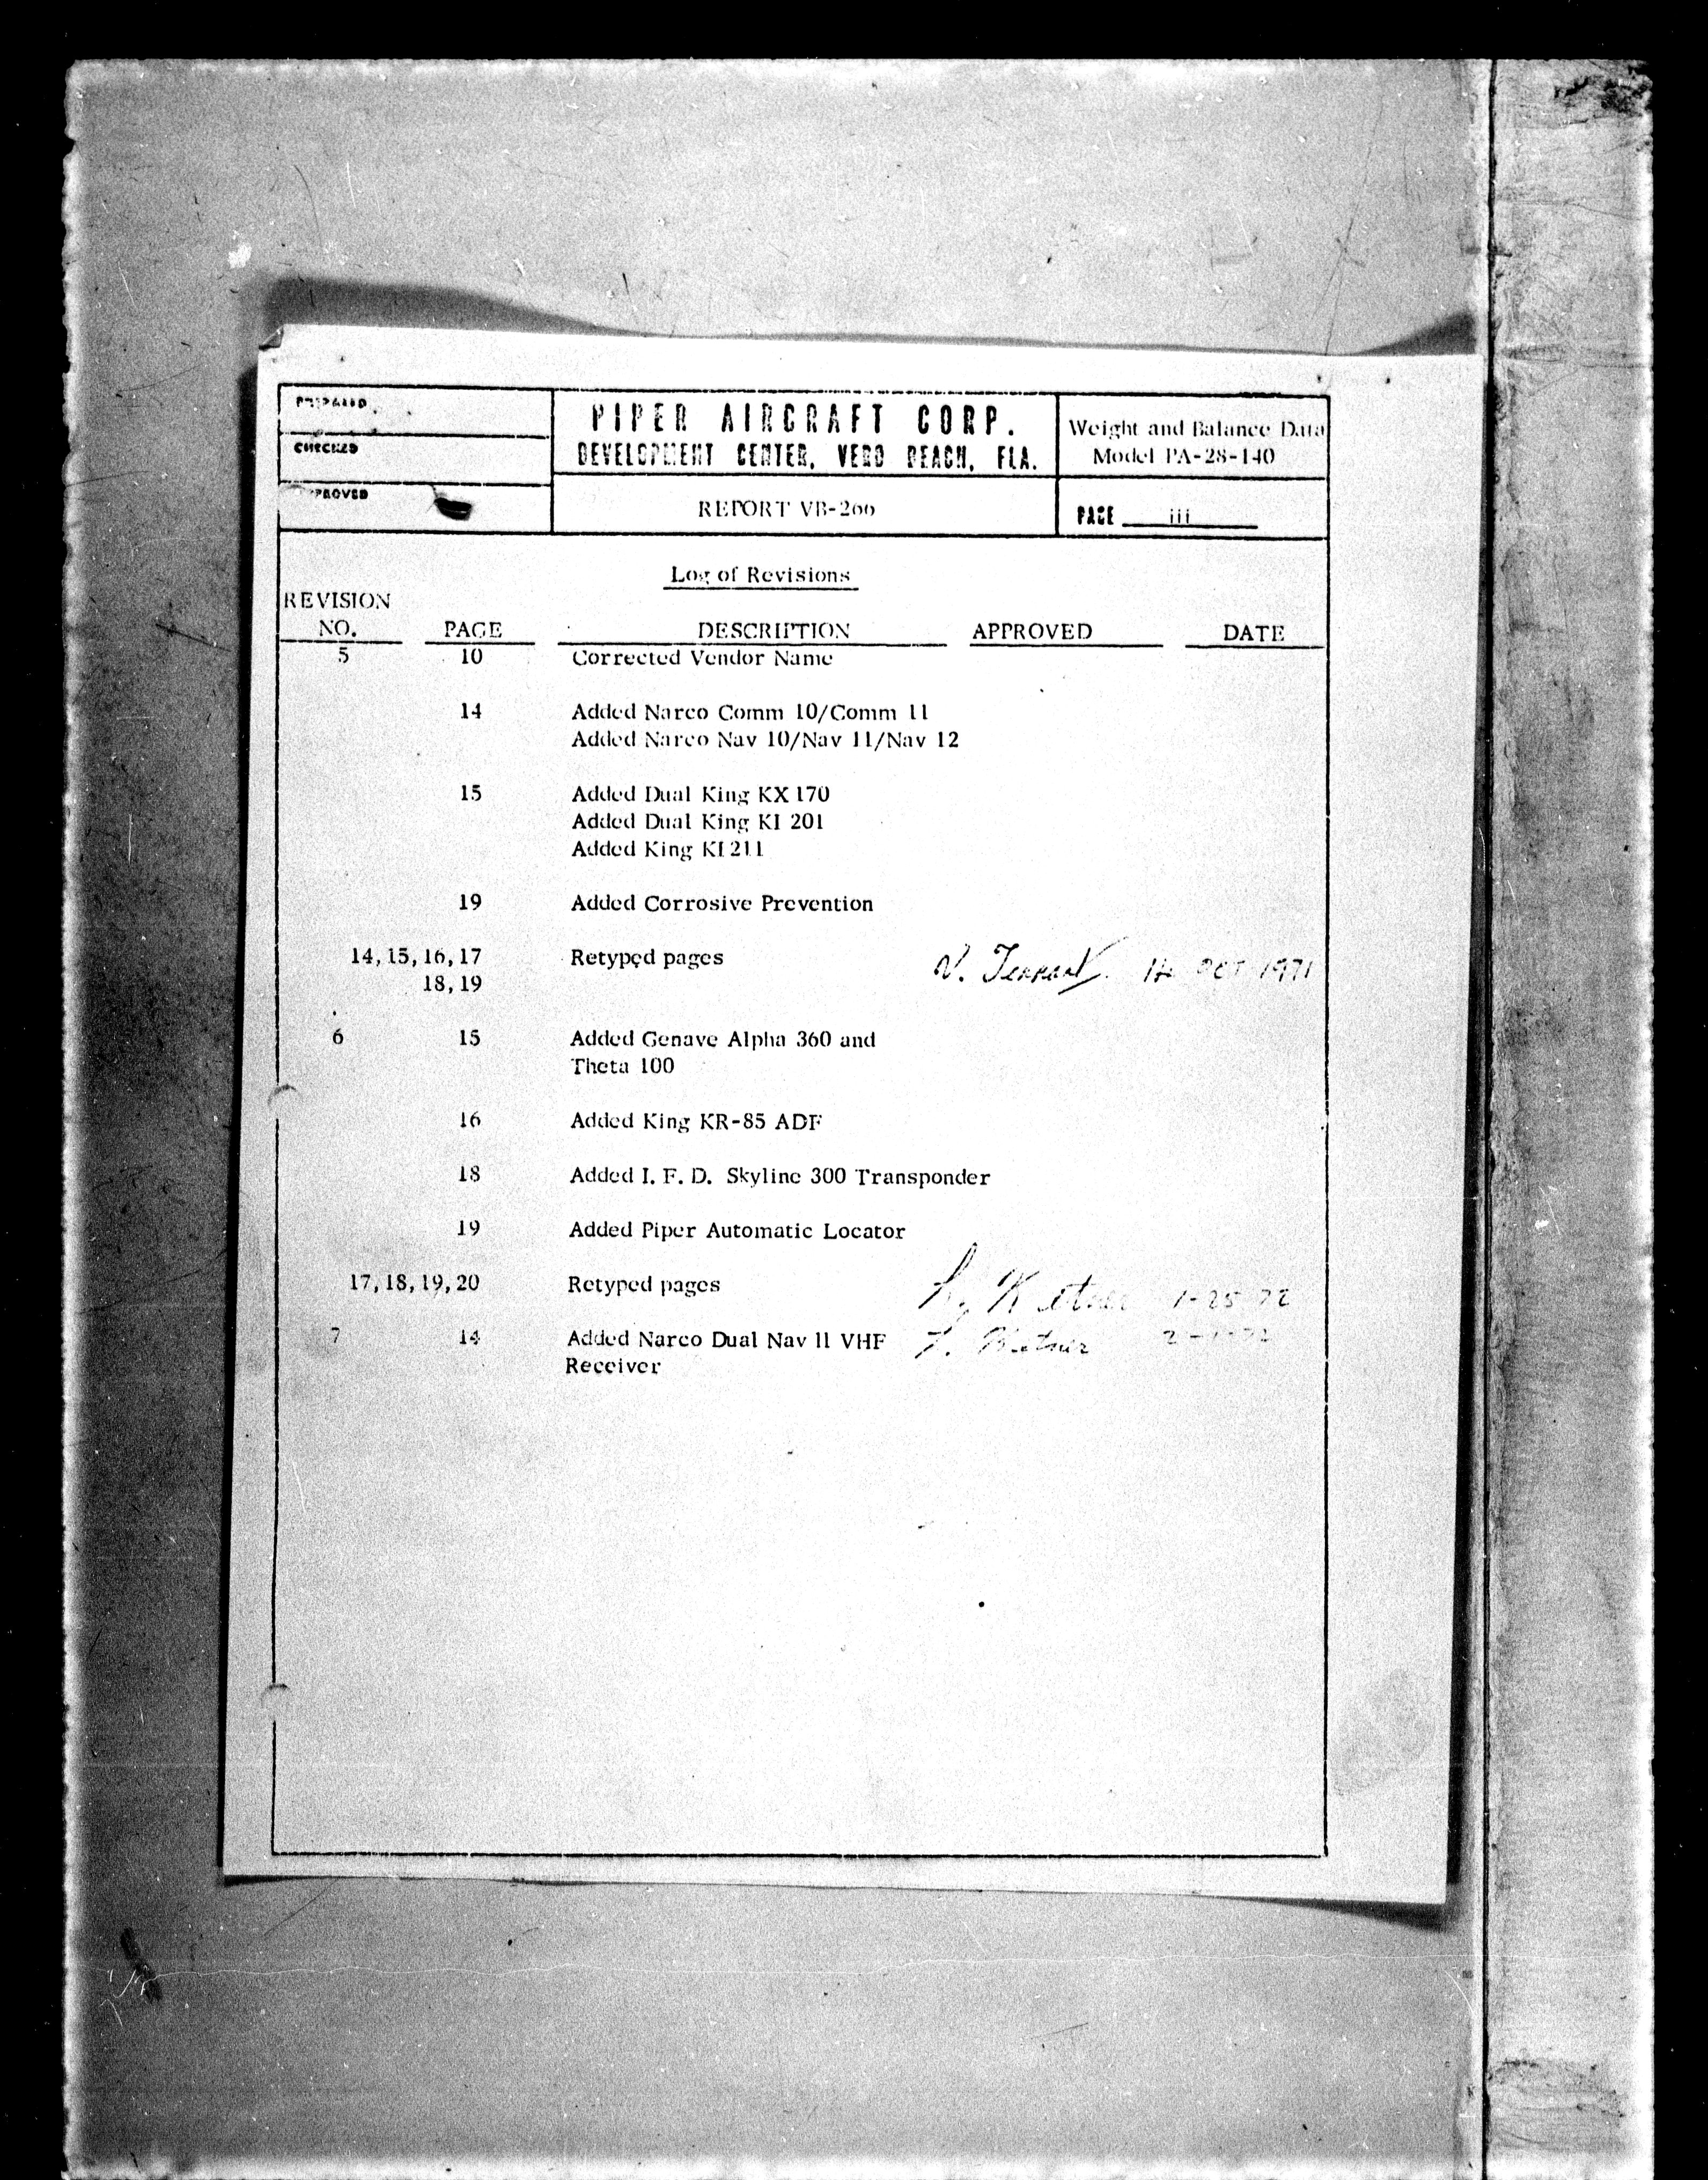 PREPARED
CHECKED
APPROVED
PIPER AIRCRAFT CORP.
DEVELOPMENT CENTER, VERO BEACH, FLA.
REPORT VB-266
Weight and Balance Data
Model PA-28-140
PAGE iii
Log of Revisions
REVISION
NO. PAGE DESCRIPTION APPROVED DATE
5 10 Corrected Vendor Name
14 Added Narco Comm 10/Comm 11
Added Narco Nav 10/Nav 11/Nav 12
15 Added Dual King KX 170
Added Dual King KI 201
Added King KI 211
19 Added Corrosive Prevention
14, 15, 16, 17 Retyped pages OCT 1971
18, 19
6 15 Added Genave Alpha 360 and
Theta 100
16 Added King KR-85 ADF
18 Added I. F. D. Skyline 300 Transponder
19 Added Piper Automatic Locator
17, 18, 19, 20 Retyped pages 1-25-72
7 14 Added Narco Dual Nav 11 VHF
Receiver